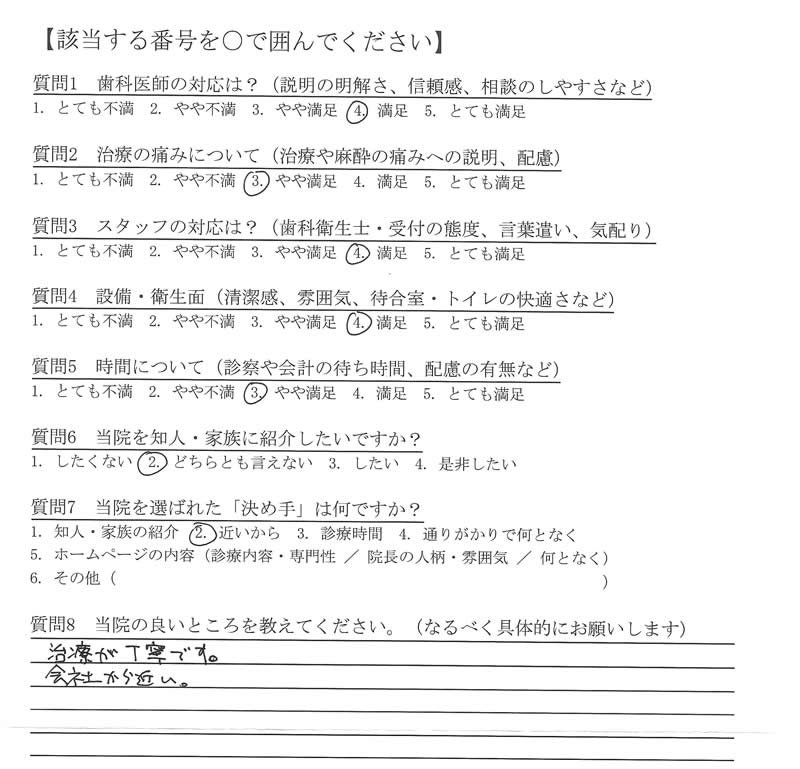 【該当する番号を○で囲んでください】
質問1　歯科医師の対応は？（説明の明解さ、信頼感、相談のしやすさなど）
1. とても不満　2. やや不満　3. やや満足　4. 満足　5. とても満足
質問2　治療の痛みについて（治療や麻酔の痛みへの説明、配慮）
1. とても不満　2. やや不満　3. やや満足　4. 満足　5. とても満足
質問3　スタッフの対応は？（歯科衛生士・受付の態度、言葉遣い、気配り）
1. とても不満　2. やや不満　3. やや満足　4. 満足　5. とても満足
質問4　設備・衛生面（清潔感、雰囲気、待合室・トイレの快適さなど）
1. とても不満　2. やや不満　3. やや満足　4. 満足　5. とても満足
質問5　時間について（診察や会計の待ち時間、配慮の有無など）
1. とても不満　2. やや不満　3. やや満足　4. 満足　5. とても満足
質問6　当院を知人・家族に紹介したいですか？
1. したくない　2. どちらとも言えない　3. したい　4. 是非したい
質問7　当院を選ばれた「決め手」は何ですか？
1. 知人・家族の紹介　2. 近いから　3. 診療時間　4. 通りがかりで何となく
5. ホームページの内容（診療内容・専門性 ／ 院長の人柄・雰囲気 ／ 何となく）
6. その他（　　　　　　　　　　）
質問8　当院の良いところを教えてください。（なるべく具体的にお願いします）
治療が丁寧です。
会社から近い。